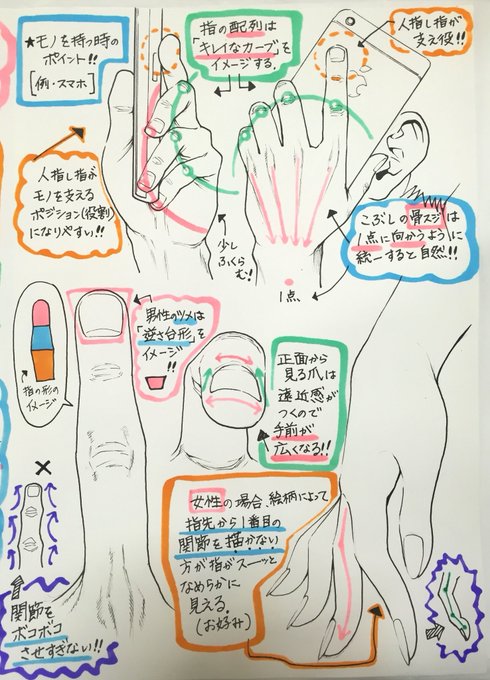 ★モノを持つ時の
ポイント!!
[例・スマホ]
指の配列は
「キレイなカーブ」を
イメージする。
人指し指が
支え役!!
人指し指が
モノを支える
ポジション(役割)
になりやすい!!
少し
ふくら
む!
こぶしの骨スジは
1点に向かうように
統一すると自然!!
1点
男性のツメは
「逆さ台形」を
イメージ!!
指の形の
イメージ
正面から
見る爪は
遠近感が
つくので
手前が
広くなる!!
女性の場合、絵柄によって
指先から1番目の
関節を描かない
方が指がスーッと
なめらかに
見える。
(お好み)
×
関節を
ボコボコ
させすぎない!!